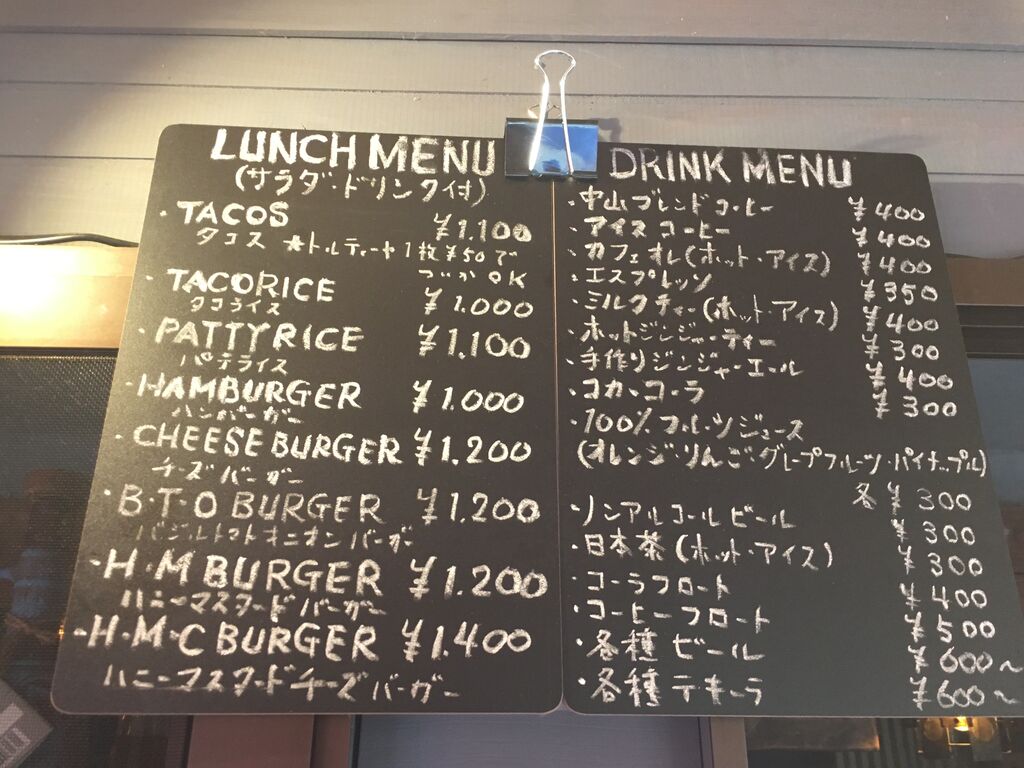 LUNCH MENU
(サラダ・ドリンク付)
・TACOS ¥1.100
タコス ★トルティーヤ1枚¥50で
ついかOK
・TACORICE ¥1.000
タコライス
・PATTYRICE ¥1.100
パテライス
・HAMBURGER ¥1.000
ハンバーガー
・CHEESE BURGER ¥1.200
チーズバーガー
・B・T・O BURGER ¥1.200
バジルトマトオニオンバーガー
・H・M BURGER ¥1.200
ハニーマスタードバーガー
・H・M・C BURGER ¥1.400
ハニーマスタードチーズバーガー
DRINK MENU
・中山ブレンドコーヒー ¥400
・アイスコーヒー ¥400
・カフェオレ(ホット・アイス) ¥400
・エスプレッソ ¥350
・ミルクティー(ホット・アイス) ¥400
・ホットジンジャーティー ¥300
・手作りジンジャーエール ¥400
・コカ・コーラ ¥300
・100%フルーツジュース
(オレンジ・りんご・グレープフルーツ・パイナップル)
各 ¥300
・ノンアルコールビール ¥300
・日本茶(ホット・アイス) ¥300
・コーラフロート ¥400
・コーヒーフロート ¥500
・各種ビール ¥600〜
・各種テキーラ ¥600〜